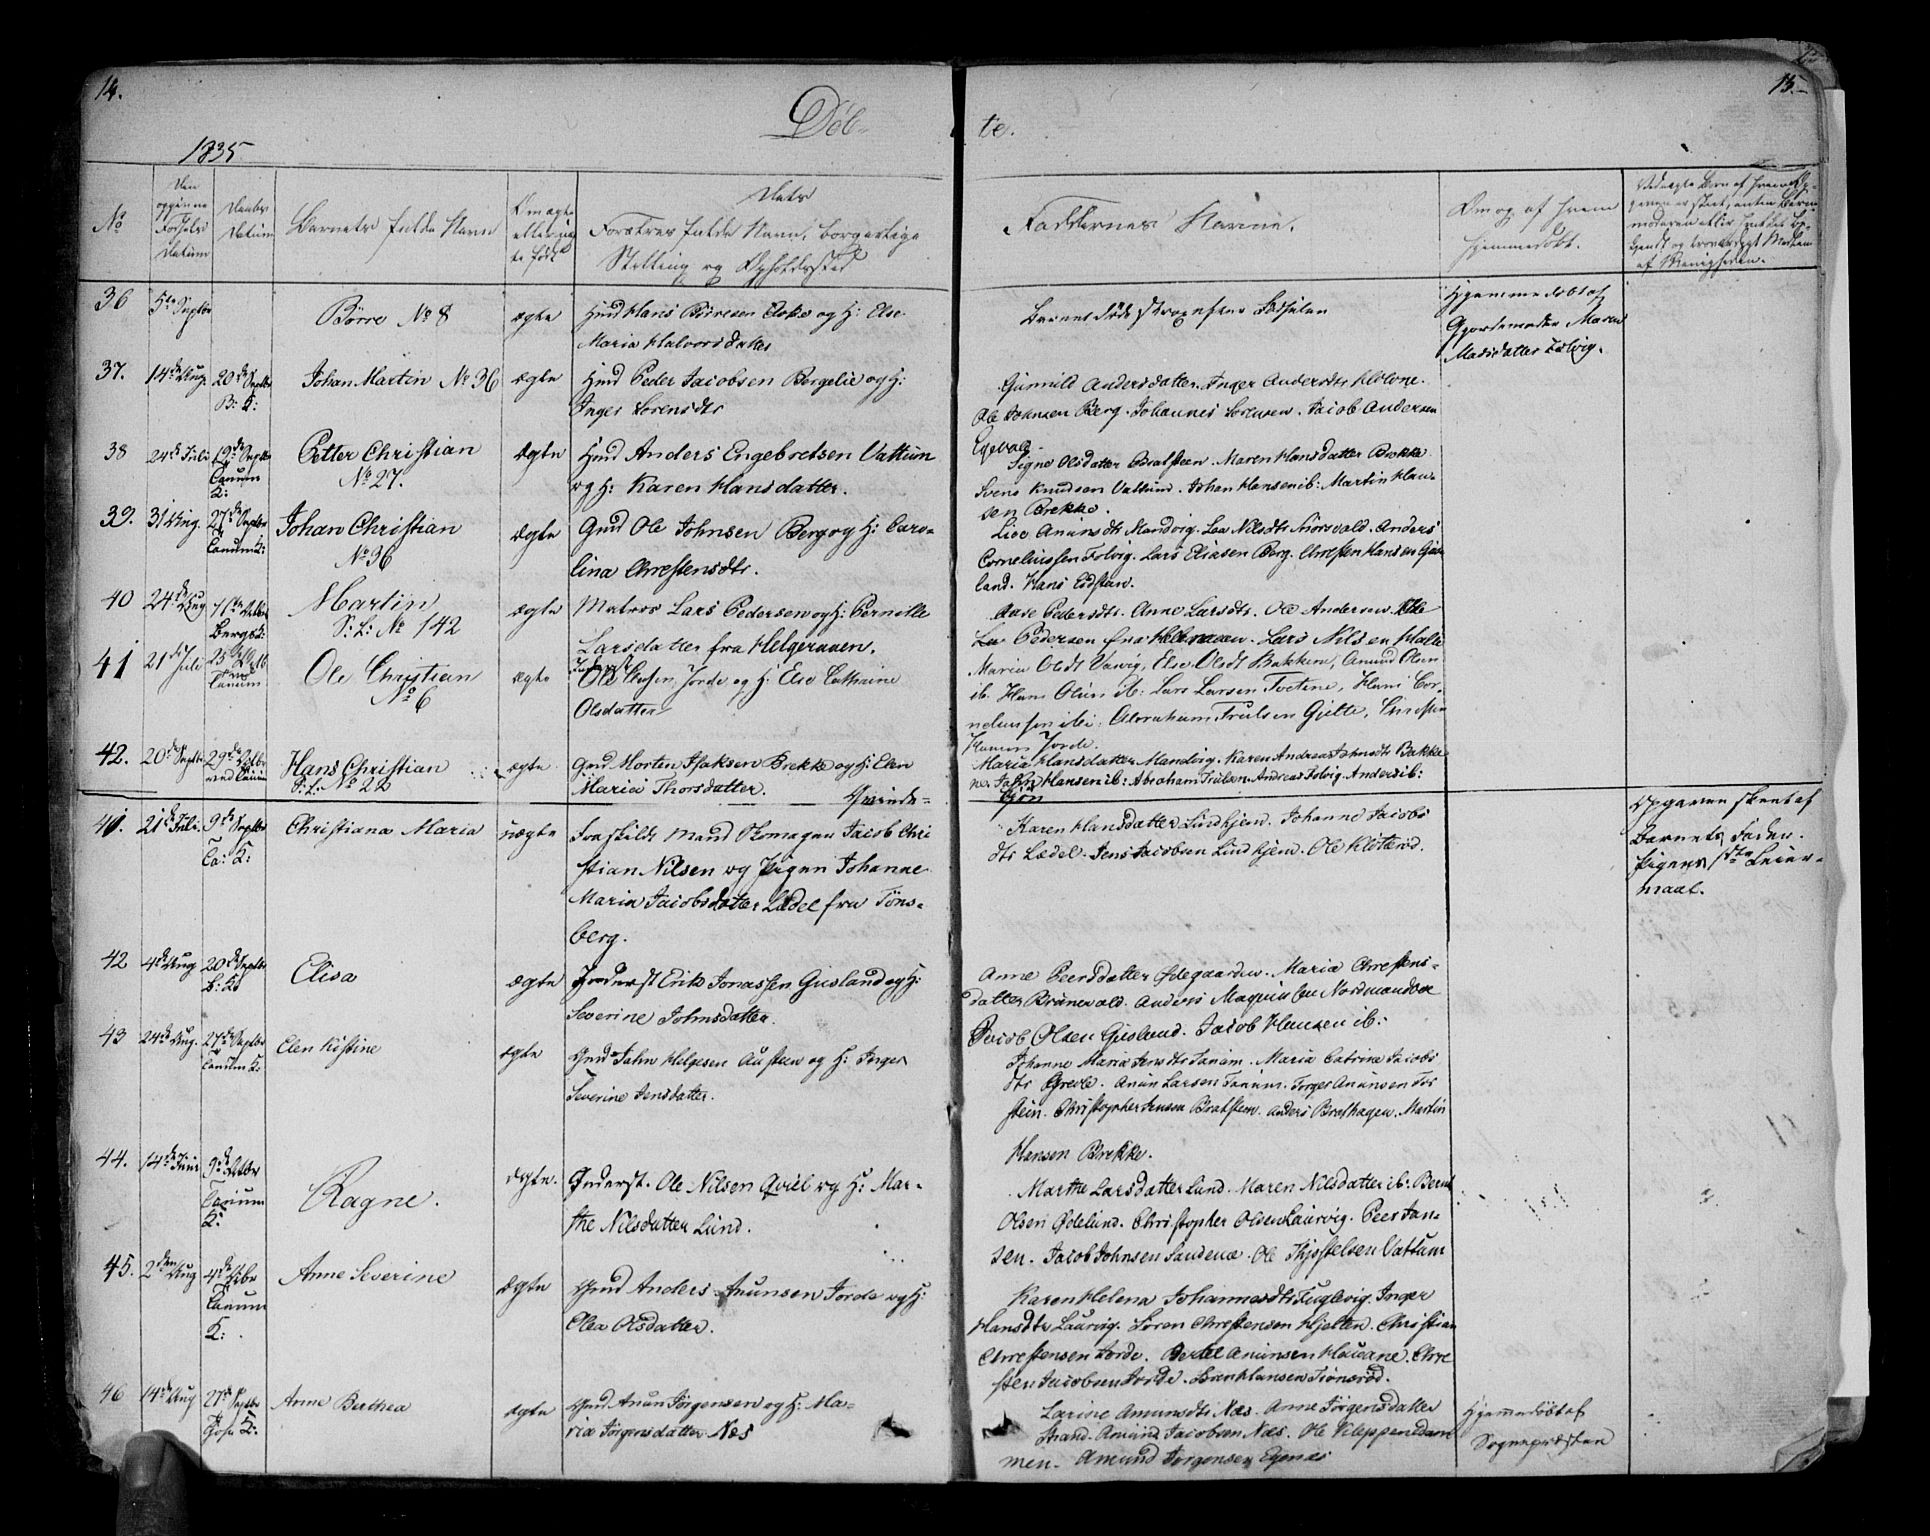 14.
15.
Døb-
te.
1835
No
Den
opgivne
Fødsels
Datum
Daabs
Datum
Barnets fulde Navn
Om ægte
eller uæg
te født
Dets
Forældres fulde Navn, borgerlige
Stilling og Opholdssted
Faddernes Navne.
Om og af hvem
hjemmedøbt.
36 5te Septbr Børre No 8 ægte Hans Børresen og H: Else
Maria Halvorsdatter
Hjemmedøbt af
Gjordemoder Maren
Madsdatter
37. 14de Aug. 20de Septbr Johan Martin No 36 ægte Gmd Peder Jacobsen Bergelie og H:
B: K:
Inger Sorensdtr
Gunnild Andersdatter. Inger Andersdtr
Ole Johnsen Berg. Johannes Sorensen. Jacob Andersen
38 24de Juli 19de Septbr Petter Christian ægte Gmd Anders Engebretsen Vattum
Tanum
K:
No 27.
og H: Karen Hansdatter.
Signe Olsdatter Bratsteen. Maren Hansdatter Brekke
Svend Knudsen Vattum. Johan Hansen ib: Martin Han-
sen Brekke.
39. 31 Aug. 27de Septbr Johan Christian ægte Gmd Ole Johnsen Berg og H: Caro-
Tanum K:
No 36
lina Chrestensdtr.
Live Anunsdtr Manvig. Lea Nilsdtr Anders
Corneliussen Folvig. Lars Eliasen Berg. Chresten Hansen
land. Hans Eidsten.
40 24de Aug Martin ægte Matros Lars Pedersen og H: Pernille
Bergs K:
S: L: No 142
Larsdatter fra Helgeraaen.
Aase Pedersdtr. Anne Larsdtr. Ole Andersen
Pedersen fra Helgeraaen. Lars Nilsen
41 21de Juli 25de Ole Christian ægte Ole Jorde og H: Else Cathrine
Tanum
No 6
Olsdatter
Maria Olsdt Else Olsdt Bakkene, Amund Olsen
ib. Hans Olsen ib: Lars Larsen Tvetene, Hans Cor-
neliussen ibi: Abraham Trulsen Gjelte, Christen
Hansen Jorde.
42. 20de Septbr 29de Octbr Hans Christian ægte Gmd Morten Isaksen Brekke og H: Elen
ved Tanum
S: L: No 22
Maria Thorsdatter.
Maria Hansdatter Manvig. Karen Andrea Johnsdtr Bakke
ne. Hansen ib: Abraham Trulsen. Andreas Folvig. Anders ib:
Qvinde-
Kjøn
41. 21de Juli 9de Septbr Christiana Maria uægte Fraskildt Mand Skomager Jacob Chri
Ta: K:
stian Nilsen og Pigen Johanne
Maria Jacobsdatter Lædel fra Tøns-
berg.
Karen Hansdatter Lindhjem. Johanne Jacobs
dtr Lædel. Jens Jacobsen Lindhjem. Ole Kløtterød.
Opgaven skeet af
Barnets Fader.
Pigens 1ste Leier-
maal.
42 4de Aug 20de Septbr Elisa ægte Inderst Erik Jonassen Guslund og H:
B: K:
Severine Johnsdatter.
Anne Peersdatter Ødegaarden. Maria Chrestens-
datter Brunevald. Anders Magnussen
Jacob Olsen Guslund. Jacob Hansen ib:
43 24de Aug. 27de Septbr Elen Kistine ægte Gmd John Helgesen Austeen og H: Inger
Tanum K:
Severine Jensdatter.
Johanne Maria Jensdtr Tanum. Maria Catrina Jacobs
dtr Grevle. Anun Larsen Tanum. Torger Anunsen Tor
stein. Christopher Jensen Bratsteen. Anders Breshagen. Martin
Hansen Brekke.
44. 14de Juni 9de Octbr Ragne. ægte. Inderst. Ole Nilsen og H: Mar-
Tanum
K:
the Nilsdatter Lund.
Marthe Larsdatter Lund. Maren Nilsdatter ib: Bernt
Olsen Ødelund. Christopher Olsen Laurvig. Peer Jan-
sen. Jacob Johnsen Sandenæ. Ole Thjostelsen Vattum
45. 2den Aug 4de Anne Severine ægte Gmd Anders Anunsen Jorde og H:
Tanum
K:
Olea Olsdatter.
Karen Helena Johannesdtr Fuglevig. Inger
Hansdtr Laurvig. Søren Chrestensen Hjelten. Christian
Chrestensen Jorde. Bertel Anunsen Haugane. Chre
sten Jacobsen Jorde. Hansen
46 14de Aug 27de Septbr Anne Berthea ægte Gmd Anun Jørgensen og H: Ma-
K:
ria Jørgensdatter Næs
Larine Amundsdtr Næs. Anne Jørgensdatter
Strand. Amund Jacobsen Næs. Ole Kleppenedam
men. Amund Jørgensen Egenes
Hjemmedøbt af
Sognepræsten